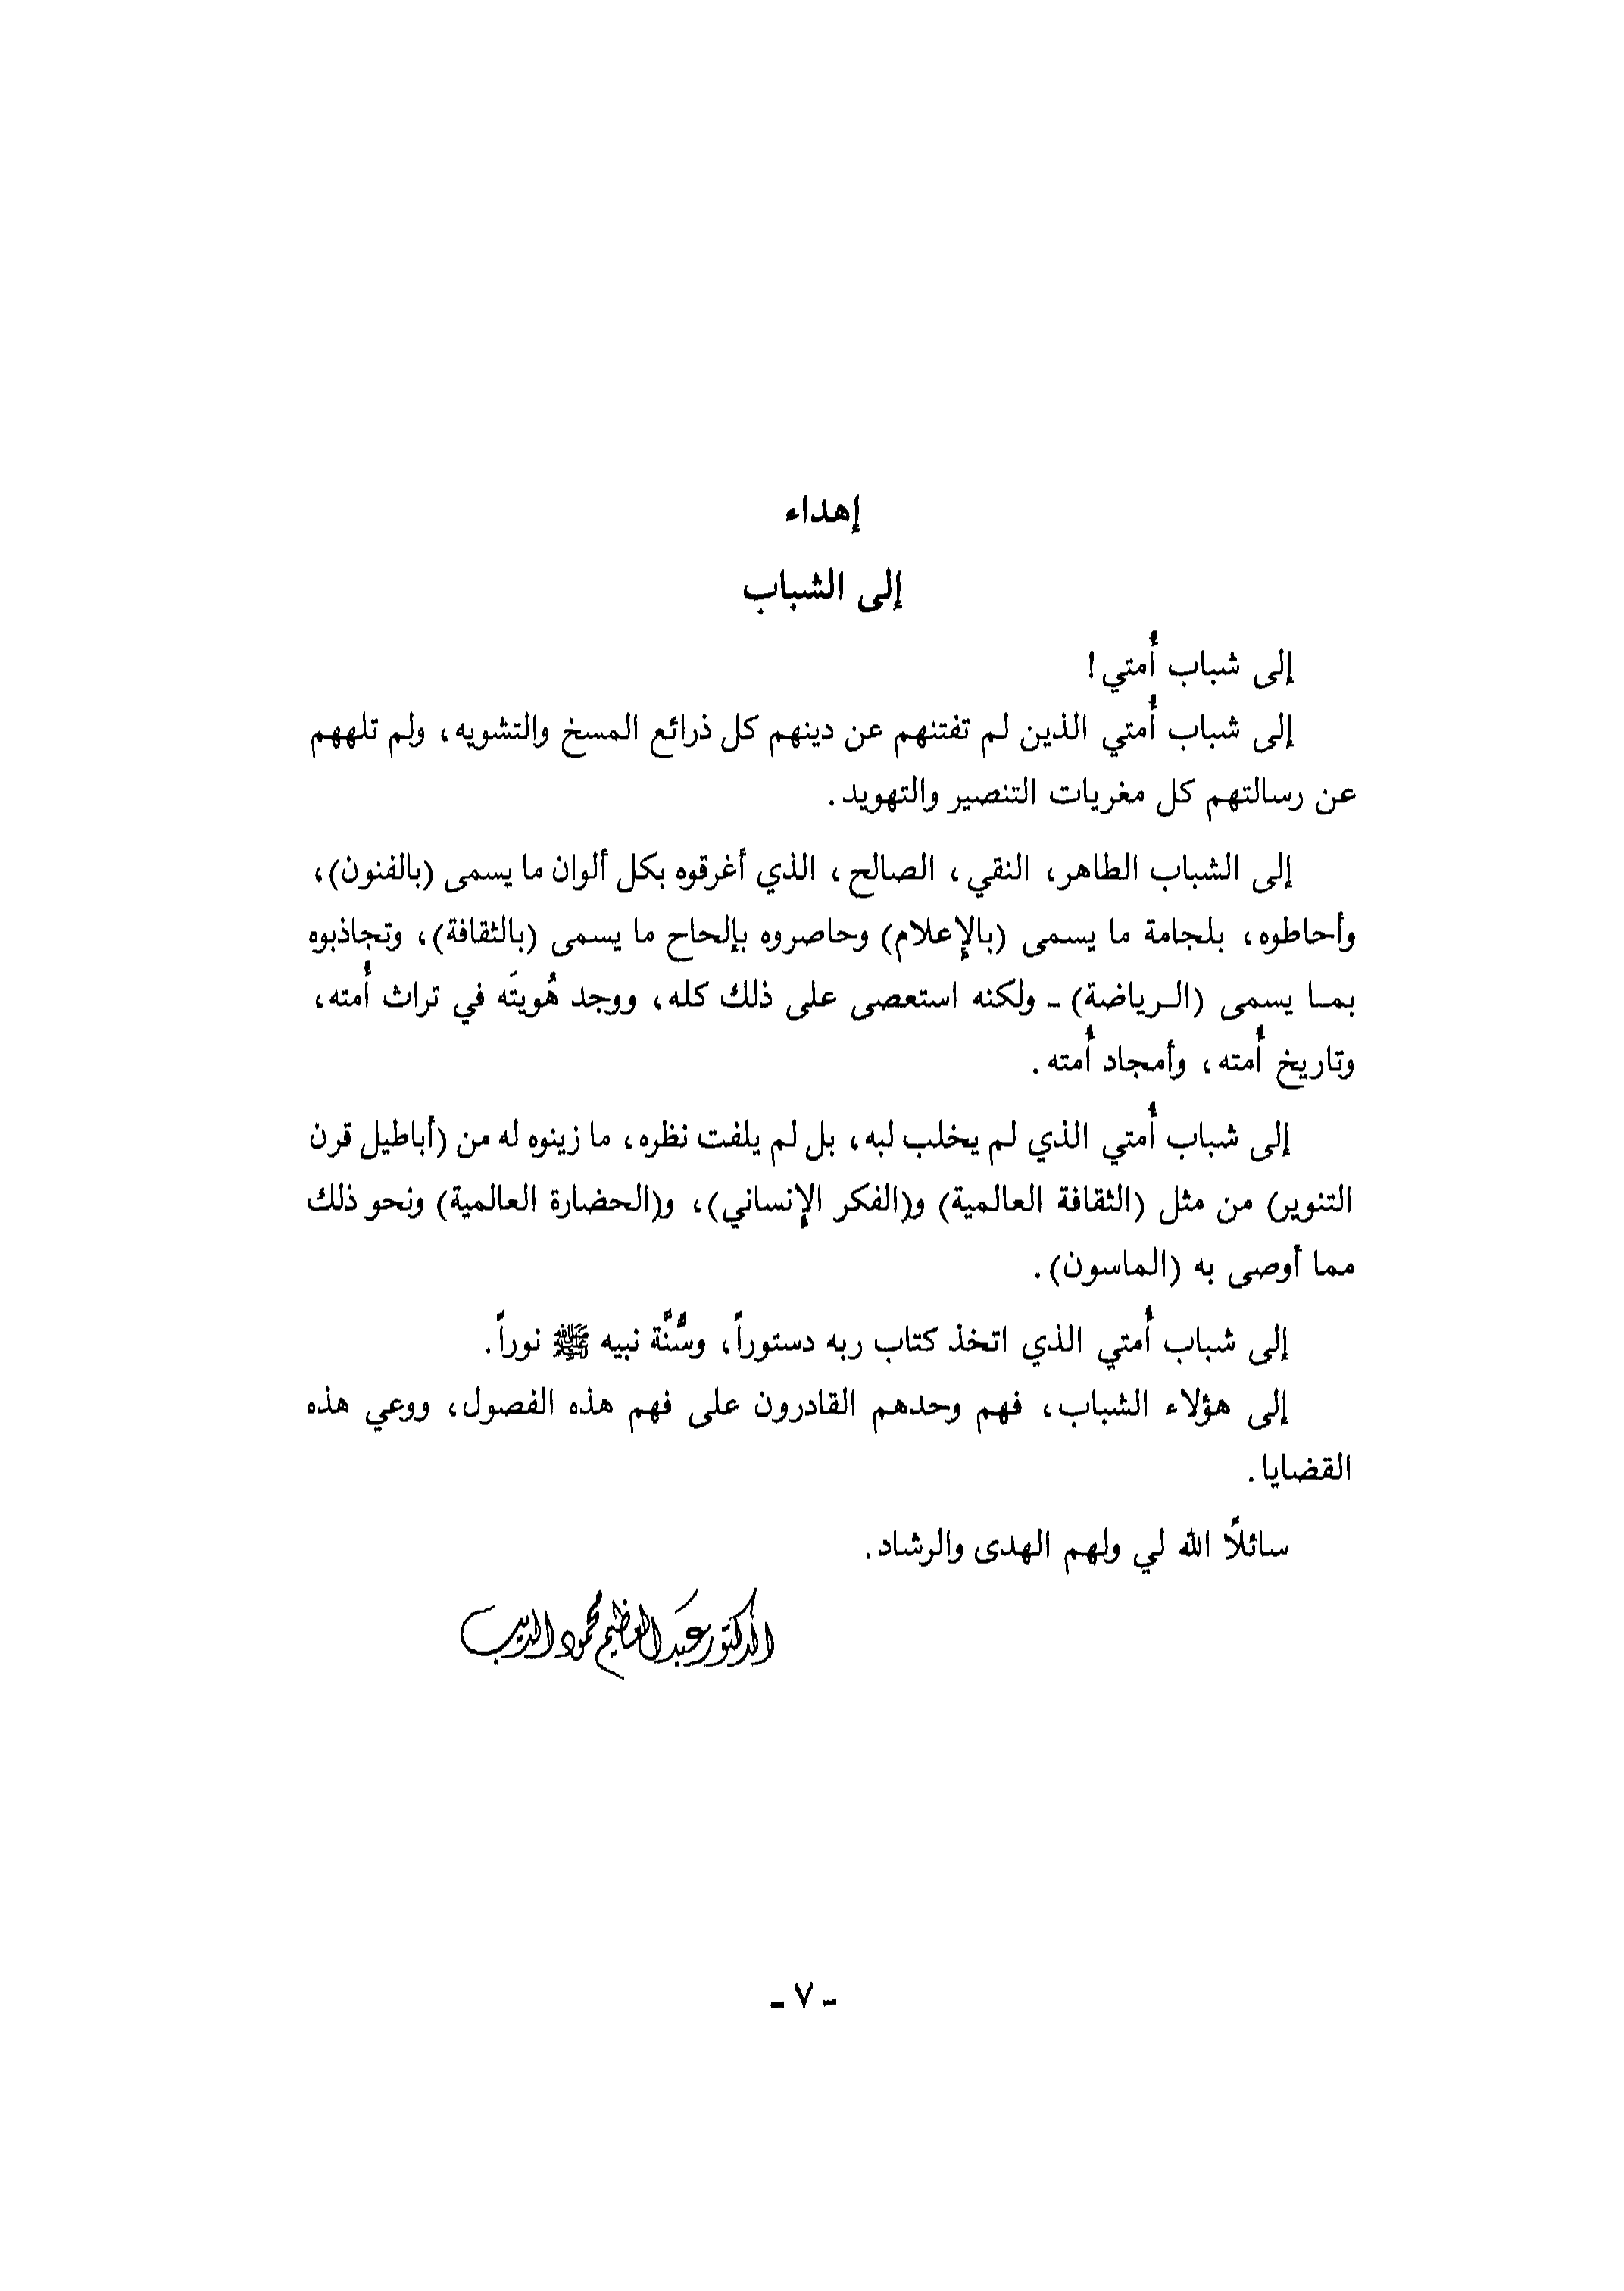 إهداء
إلى الشباب
إلى شباب أُمتي!
إلى شباب أُمتي الذين لم تفتنهم عن دينهم كل ذرائع المسخ والتشويه، ولم تلههم
عن رسالتهم كل مغريات التنصير والتهويد.
إلى الشباب الطاهر، النقي، الصالح، الذي أغرقوه بكل ألوان ما يسمى (بالفنون)،
وأحاطوه، بلجامة ما يسمى (بالإعلام) وحاصروه بإلحاح ما يسمى (بالثقافة)، وتجاذبوه
بما يسمى (الرياضة) ـ ولكنه استعصى على ذلك كله، ووجد هُويتَه في تراث أُمته،
وتاريخ أُمته، وأمجاد أُمته.
إلى شباب أُمتي الذي لم يخلب لبه، بل لم يلفت نظره، ما زينوه له من (أباطيل قرن
التنوير) من مثل (الثقافة العالمية) و(الفكر الإنساني)، و(الحضارة العالمية) ونحو ذلك
مما أوصى به (الماسون).
إلى شباب أُمتي الذي اتخذ كتاب ربه دستوراً، وسُّنَّة نبيه ﷺ نوراً.
إلى هؤلاء الشباب، فهم وحدهم القادرون على فهم هذه الفصول، ووعي هذه
القضايا.
سائلًا الله لي ولهم الهدى والرشاد.
الدكتور عبد العظيم محمود الديب
ـ ٧ ـ